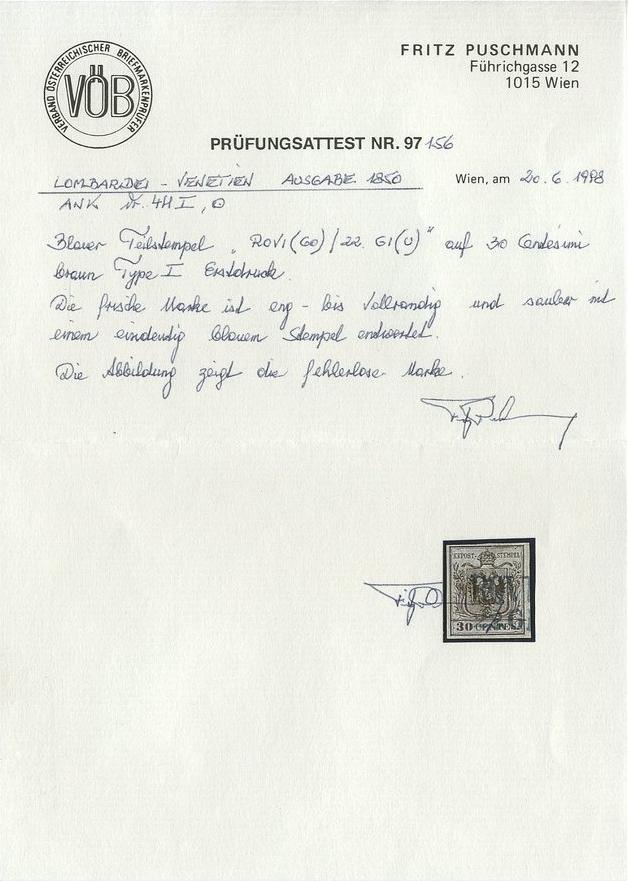 VERBAND ÖSTERREICHISCHER BRIEFMARKENPRÜFER
VÖB
FRITZ PUSCHMANN
Führichgasse 12
1015 Wien
PRÜFUNGSATTEST NR. 97 156
LOMBARDEI - VENETIEN AUSGABE 1850 Wien, am 20.6.1998
ANK Nr. 4H I, ⊙
Blauer Teilstempel „ROVI(GO)/22. GI(U)" auf 30 Centesimi
braun Type I Erstdruck.
Die frische Marke ist eng - bis vollrandig und sauber mit
einem eindeutig blauem Stempel entwertet.
Die Abbildung zeigt die fehlerlose Marke.
KKPOST-STEMPEL
30 CENTES.